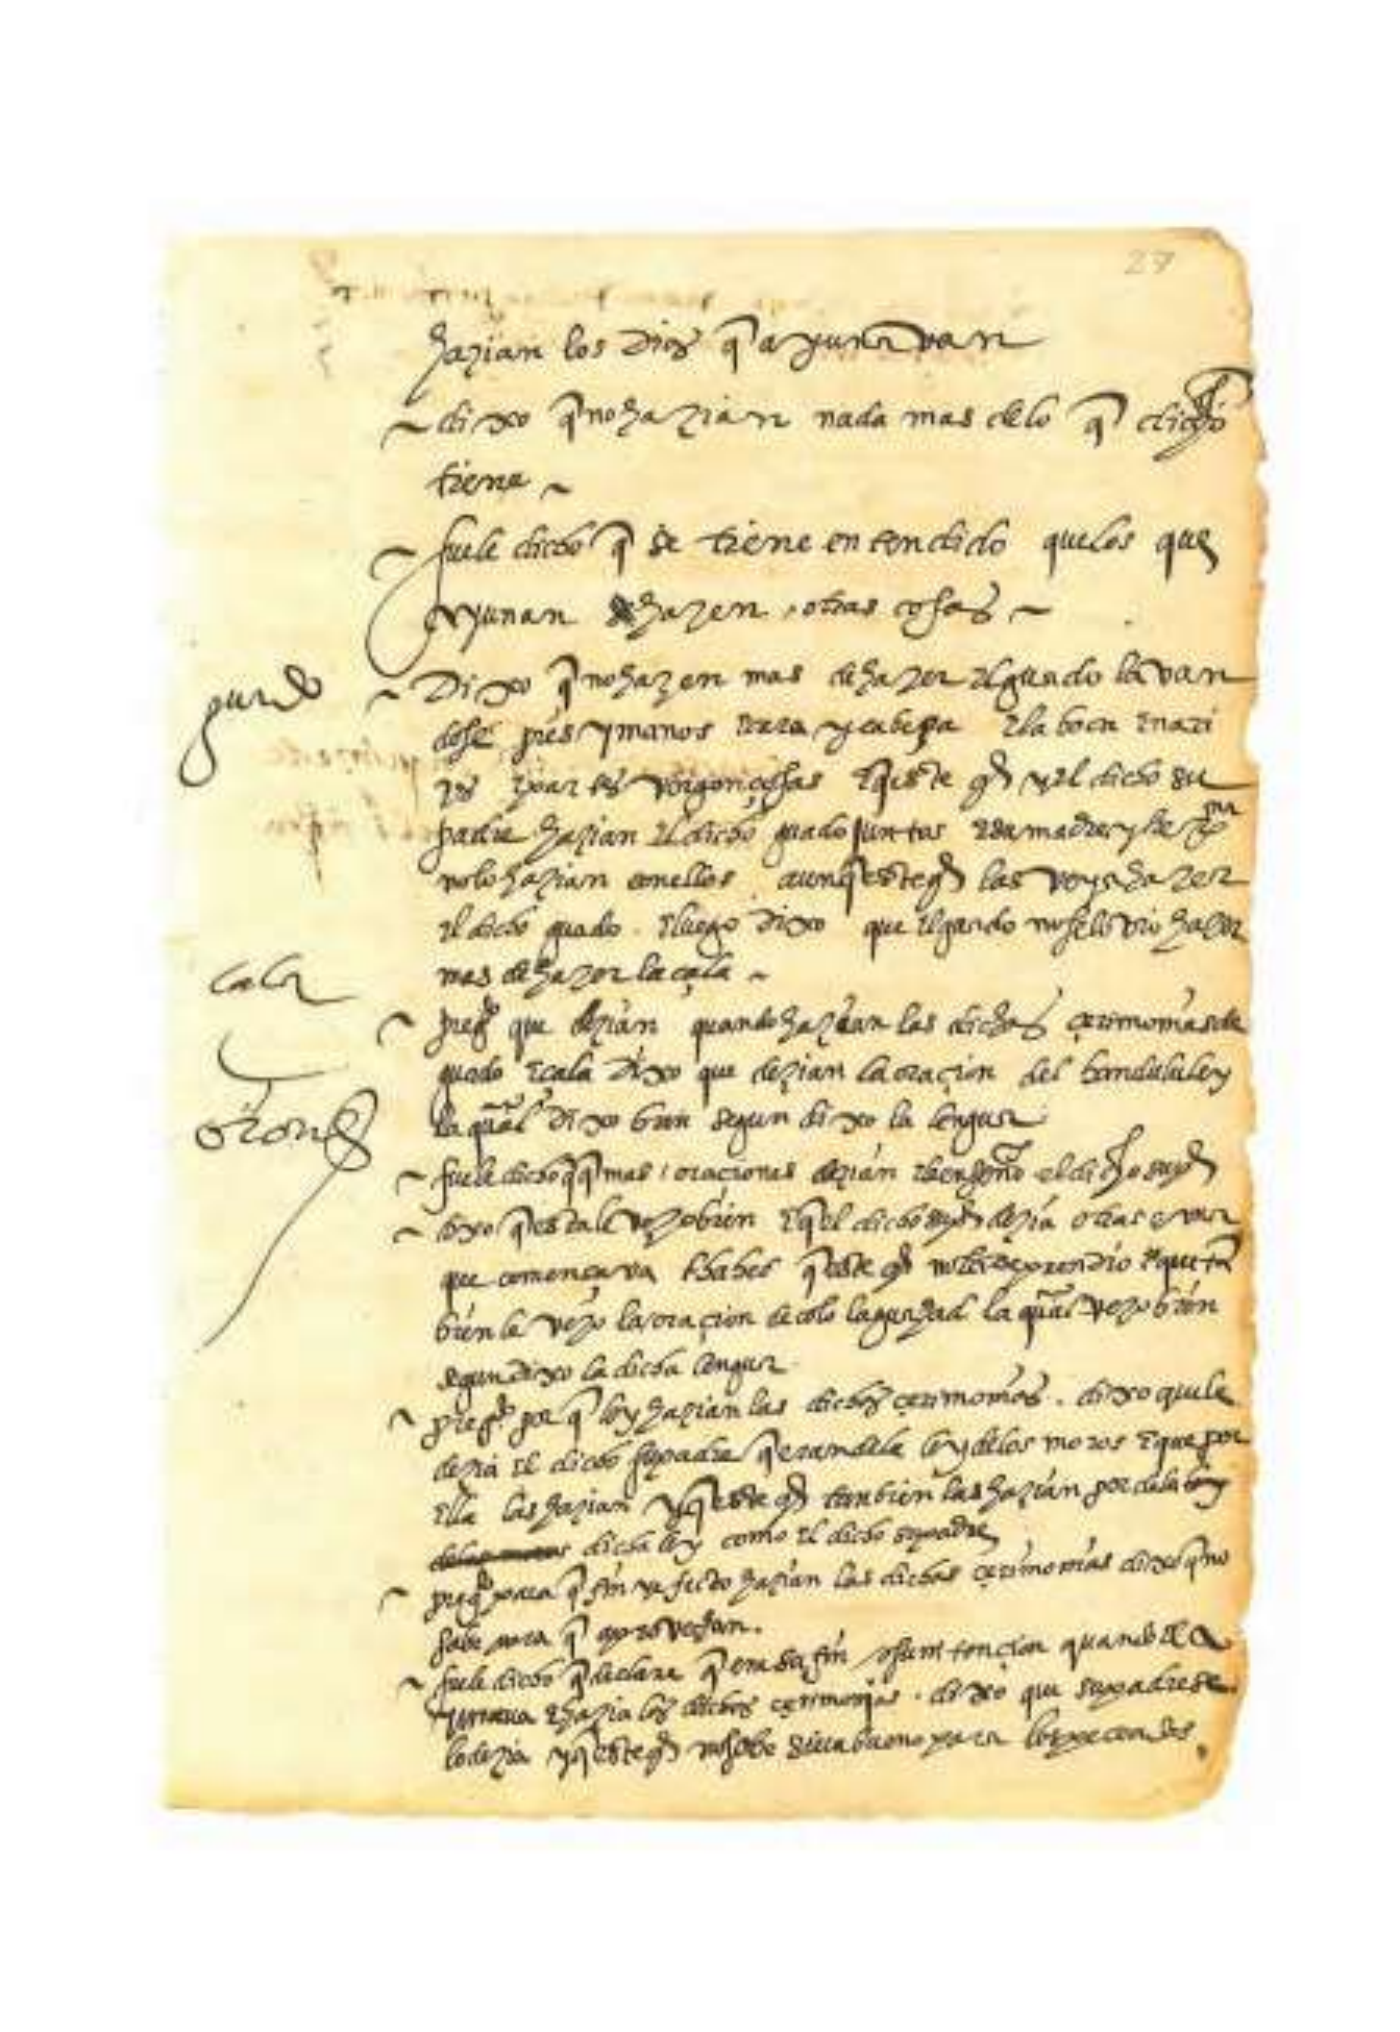 27
hazian los dias q ayunavan
dixo q no hazian nada mas delo q dicho
tiene
fuele dicho q se tiene entendido quelos que
ayunan hazen otras cosas
guado
Dixo q no hazen mas de hazer el guado lavan
dose pies y manos e cara y cabeça e la boca e nari
zes e partes vergonçosas e queste qº y el dicho su
padre hazian el dicho guado juntos e su madre y
no lo hazian con ellos aunq este qº las veya hazer
el dicho guado. e luego dixo que el guado no selo vio hazer
mas de hazer la çala
çala
pregº que dezian quando hazian las dichas çerimonias de
guado e çala dixo que dezian la oraçion del handululey
la qual dixo bien segun dixo la lengua
oraçiones
fuele dicho q mas oraçiones dezian el dicho su pº
dixo q esta le vezo bien e quel dicho su pº dezia otras
que començava q este qº no las deprendio e que tan
bien le vezo la oraçion de colo la qual vezo bien
segun dixo la dicha lengua
pregº por q ley hazian las dichas çerimonias. dixo que le
dezia el dicho su padre q eran dela ley delos moros e que por
ella las hazian y q este qº tanbien las hazian por dela ley
dicha ley como el dicho su padre
pregº para q fin y efecto hazian las dichas çerimonias dixo q no
sabe para q aprovechan.
fuele dicho q declare q era su fin o su intençion quando el a
yunava e hazia las dichas çerimonias. dixo que su padre se
lo dezia y q este qº no sabe si era bueno para los pecados.